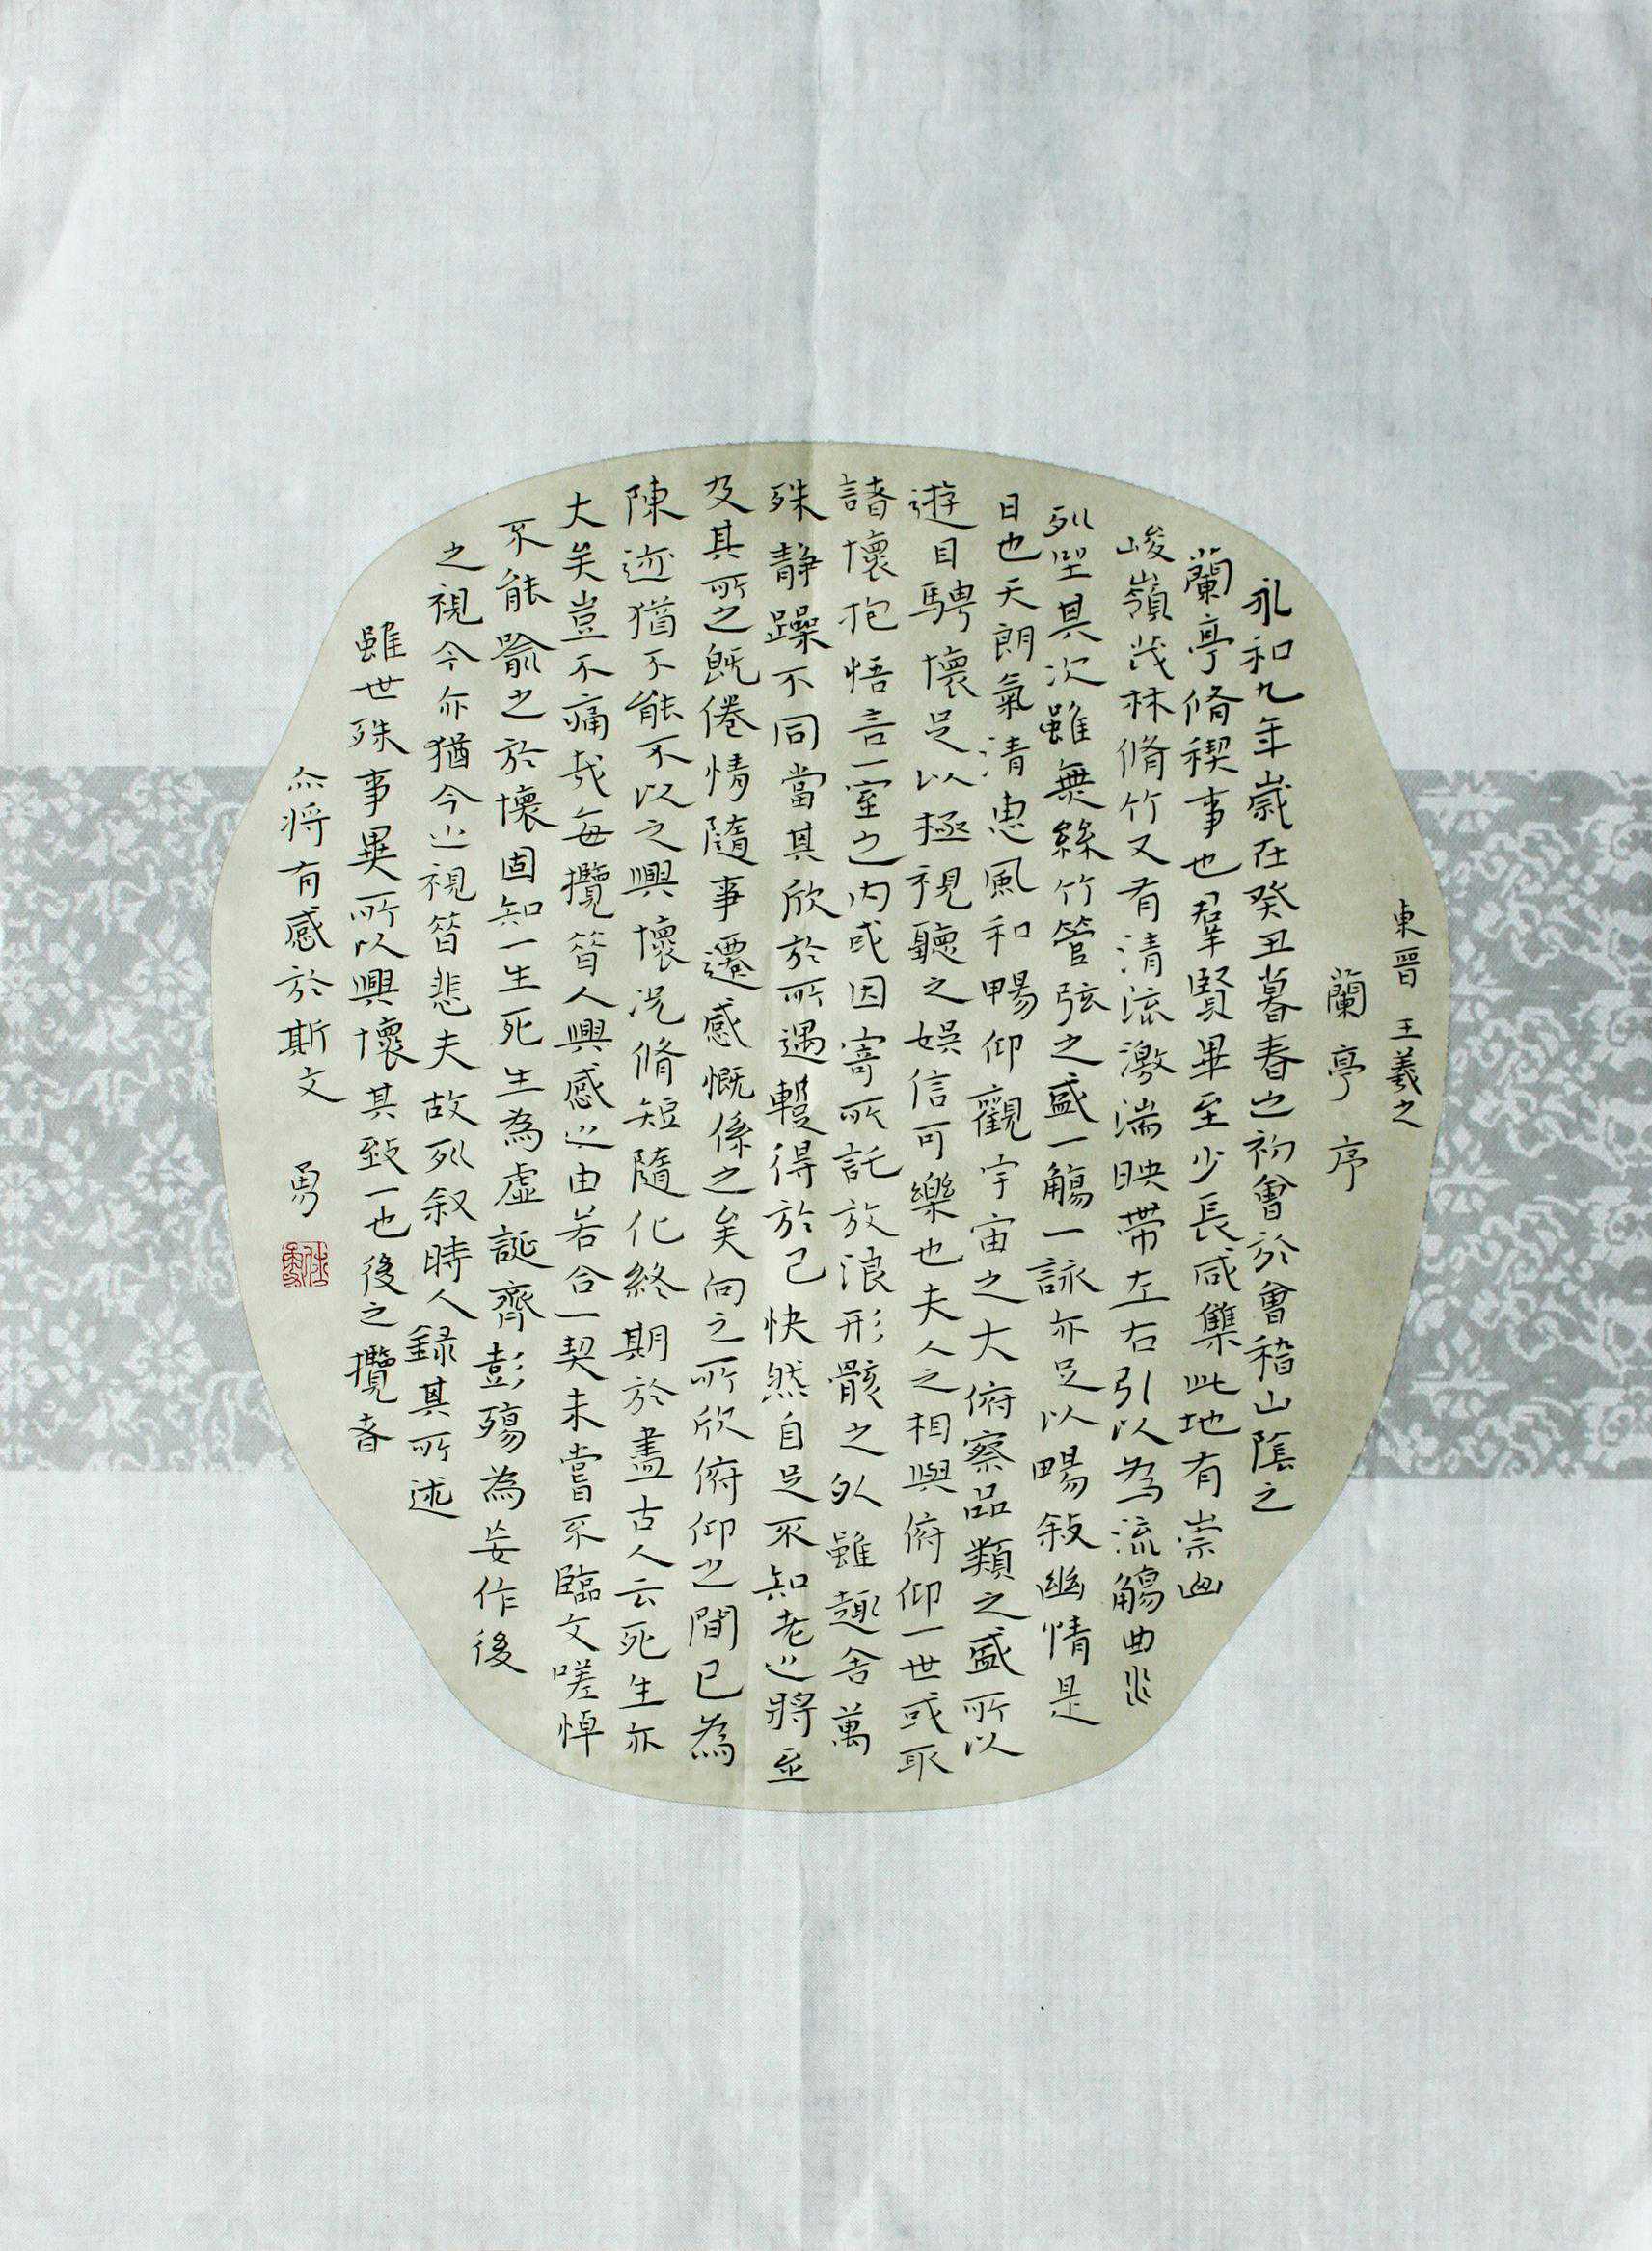 東晉 王羲之
蘭亭序
永和九年歲在癸丑暮春之初會於會稽山陰之
蘭亭脩禊事也羣賢畢至少長咸集此地有崇山
峻嶺茂林脩竹又有清流激湍映帶左右引以為流觴曲水
列坐其次雖無絲竹管弦之盛一觴一詠亦足以暢敍幽情是
日也天朗氣清惠風和暢仰觀宇宙之大俯察品類之盛所以
遊目騁懷足以極視聽之娛信可樂也夫人之相與俯仰一世或取
諸懷抱悟言一室之內或因寄所託放浪形骸之外雖趣舍萬
殊靜躁不同當其欣於所遇蹔得於己快然自足不知老之將至
及其所之既倦情隨事遷感慨係之矣向之所欣俯仰之間已為
陳迹猶不能不以之興懷況脩短隨化終期於盡古人云死生亦
大矣豈不痛哉每攬昔人興感之由若合一契未嘗不臨文嗟悼
不能喻之於懷固知一生死生為虛誕齊彭殤為妄作後
之視今亦猶今之視昔悲夫故列叙時人錄其所述
雖世殊事異所以興懷其致一也後之攬者
亦將有感於斯文 勇